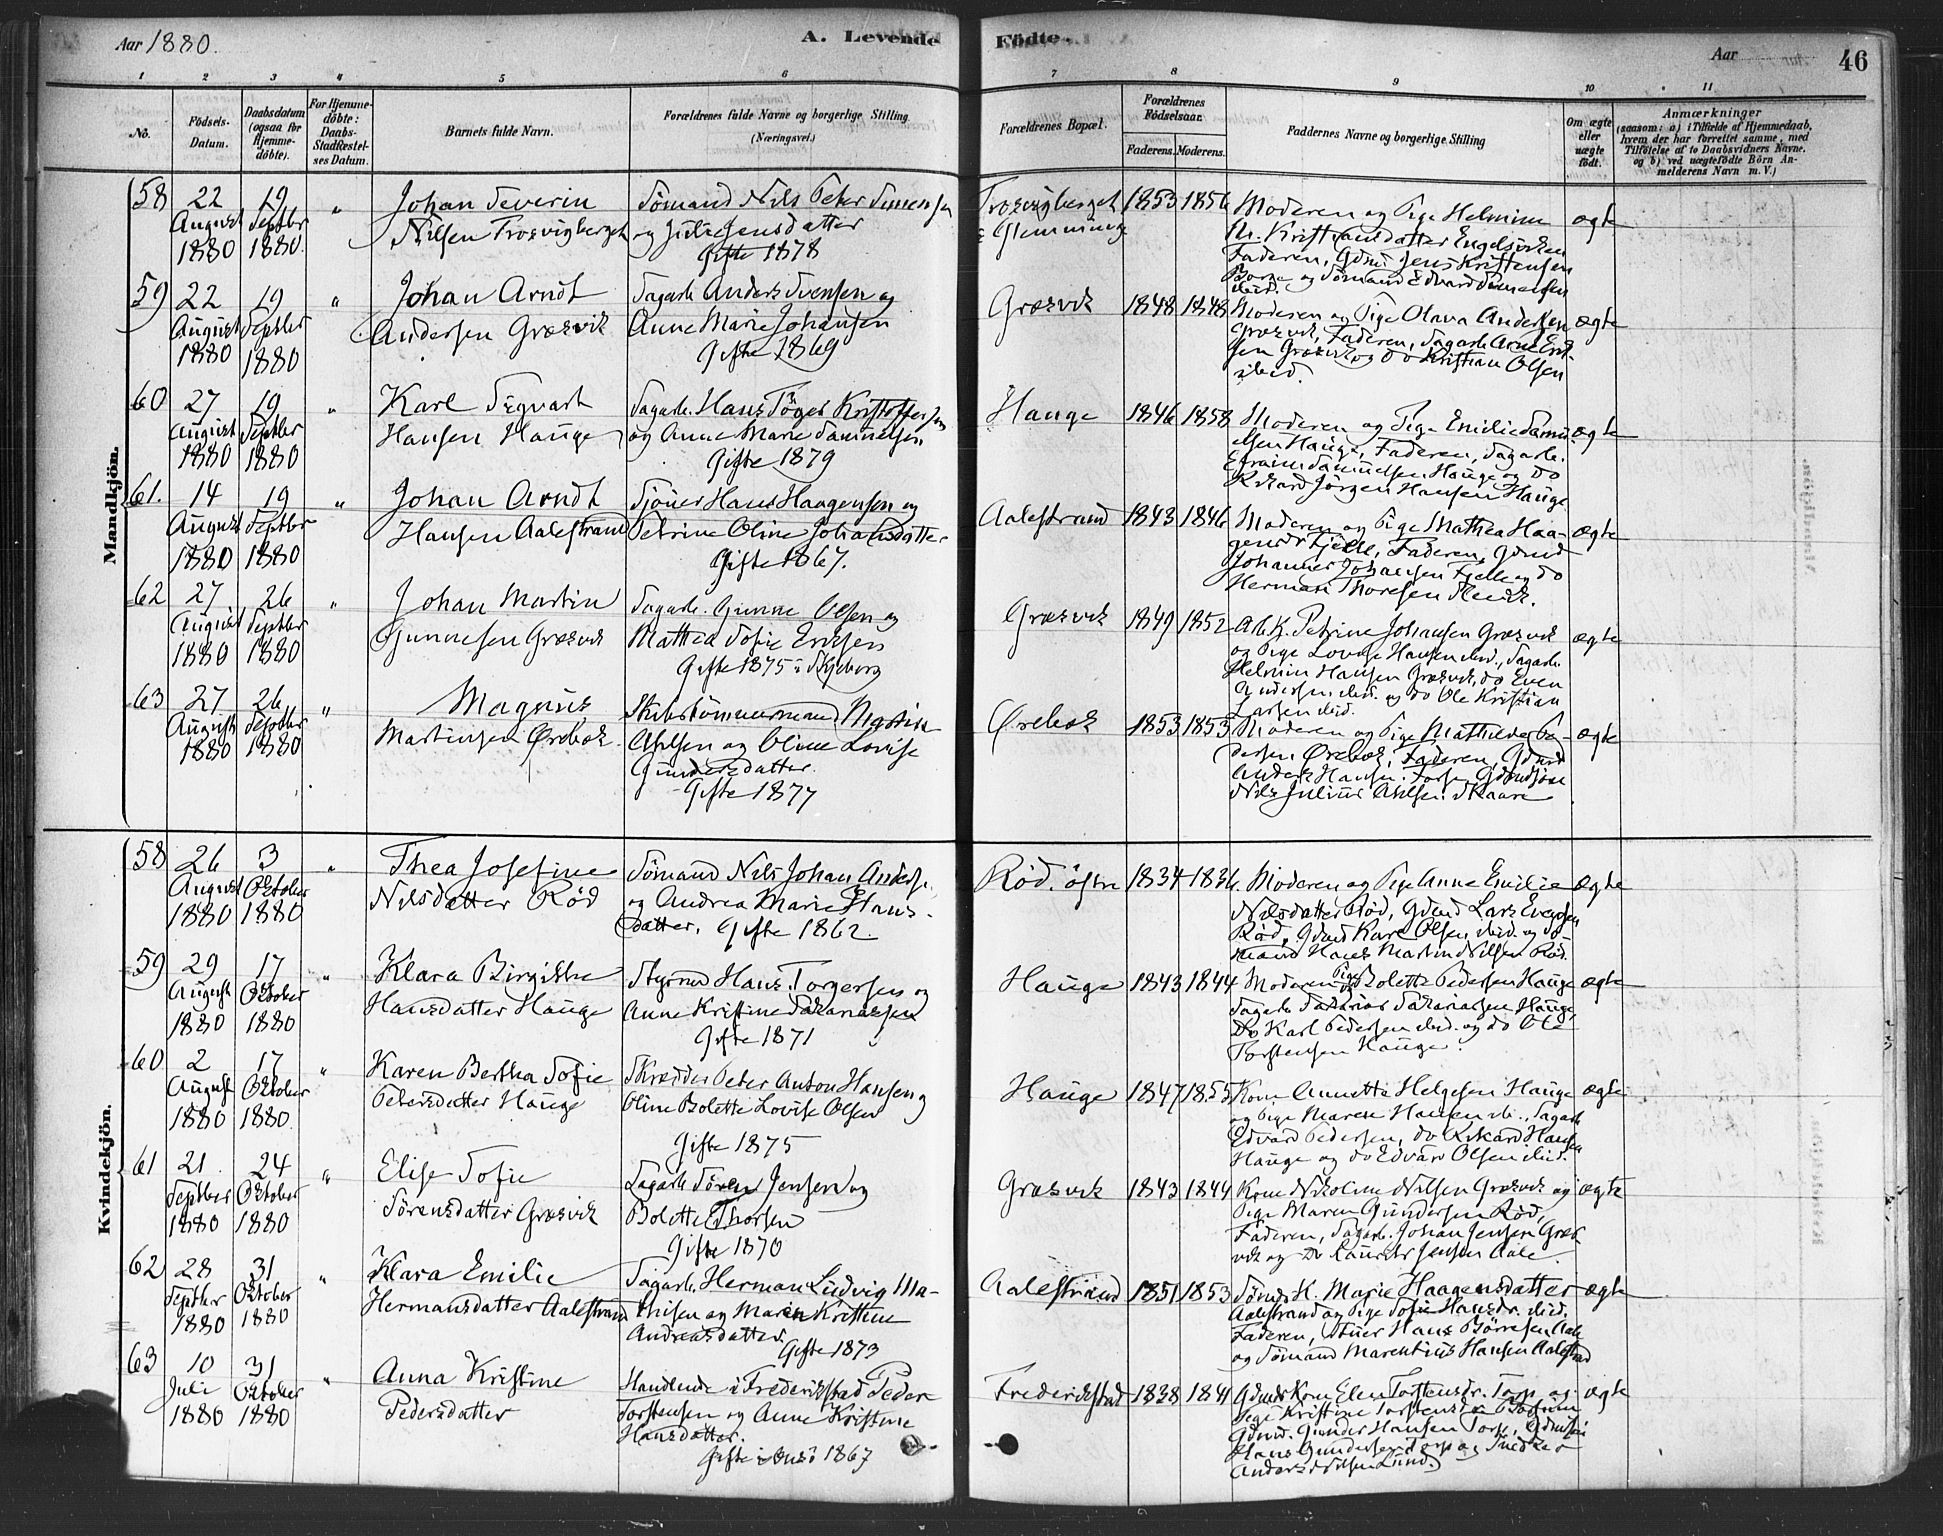 Aar 1880.
A. Levende
Födte.
Aar
46
1 2 3 4 5 6 7 8 9 10 11
No.
Födsels-Datum.
Daabsdatum (ogsaa for Hjemme-döbte).
For Hjemme-döbte: Daabs-Stadfæstel-ses Datum.
Barnets fulde Navn.
Forældrenes fulde Navne og borgerlige Stilling (Næringsvei.)
Forældrenes Bopæl.
Forældrenes Födselsaar.
Faderens. Moderens.
Faddernes Navne og borgerlige Stilling
Om ægte eller uægte födt.
Anmærkninger
(saasom: a) i Tilfælde af Hjemmedaab,
hvem der har forrettet samme, med
Tilföielse af to Daabsvidners Navne.
og b) ved uægtefödte Börn An-
melderens Navn m. V.)
Mandkjön.
58 22 August 1880 19 Septbr 1880 "
Johan Severin
Nilsen Trosvigberget
Sømand Nils Peter Simensen
og Julie Jensdatter
Gifte 1878
Trosvigberget
i Glemminge
1853 1856
Moderen og Pige Helmine
M. Kristiansdatter Engelsviken
Faderen, Gdmd Jens Kristensen
Borge og Sømand Edvard Simensen
ibid.
ægte
59 22 August 1880 19 Septbr 1880 "
Johan Arndt
Andersen Græsvik
Sagarb Anders Svensen og
Anne Marie Johansen
Gifte 1869
Græsvik
1848 1848
Moderen og Pige Olava Andersen
Græsvik, Faderen, Sagarb Arne Erik-
sen Græsvik og Do Kristian Olsen
ibid.
ægte
60 27 August 1880 19 Septbr 1880 "
Karl Sigvart
Hansen Hauge
Sagarb. Hans Töger Kristoffersen
og Anne Marie Samuelsen
Gifte 1879
Hauge
1846 1858
Moderen og Pige Emilie Samu-
elsen Hauge, Faderen, Sagarb.
Efraim Samuelsen Hauge og Do
Rikard Jörgen Hansen Hauge
ægte
61. 14 August 1880 19 Septbr 1880 "
Johan Arndt
Hansen Aalestrand
Tjöner Hans Haagensen og
Petrine Oline Johansdatter
Gifte 1867.
Aalestrand
1843 1846
Moderen og Pige Mathea Haa-
gensdr Fjelle, Faderen, Gdmd
Johannes Johansen Fjelle og Do
Herman Thoresen
ægte
62 27 August 1880 26 Septbr 1880 "
Johan Martin
Gunnesen Græsvik
Sagarb. Gunne Olsen og
Mathea Sofie Eriksen
Gifte 1875 i Skjeberg
Græsvik
1849 1852
Arb.K. Petrine Johansen Græsvik
og Pige Lovise Hansen ibid., Sagarb.
Helmin Hansen Græsvik, do Even
Andersen ibid. og do Ole Kristian
Larsen ibid.
ægte
63 27 August 1880 26 Septbr 1880 "
Magnus
Martinsen Ørebæk
Skibstömmermand Martin
Axelsen og Oline Lovise
Gundersdatter.
Gifte 1877
Ørebæk
1853 1853
Moderen og Pige Mathilde Pe-
dersen Ørebæk, Faderen, Gdmd
Anders Hansen Torp, Gdmdsön
Nils Julius Axelsen Skaare
ægte
Kvindekjön.
58 26 August 1880 3 Oktober 1880 "
Thea Josefine
Nilsdatter Rød
Sømand Nils Johan Anders.
og Andrea Marie Hans-
datter. Gifte 1862.
Rød. östre
1834 1836
Moderen og Pige Anne Emilie
Nilsdatter Rød, Gdmd Lars Evensen
Rød, Gdmd Karl Olsen ibid. og Sö-
mand Hans Martin Nilsen Rød.
ægte
59 29 August 1880 17 Oktober 1880 "
Klara Birgitte
Hansdatter Hauge
Styrmd Hans Torgersen og
Anne Kristine Sakariassen
Gifte 1871
Hauge
1843 1844
Moderen og Pige Bolette Pedersen Hauge
Sagarb Sakarias Sakariassen Hauge,
Do Karl Pedersen ibid. og do Ole
Torstensen Hauge.
ægte
60 2 August 1880 17 Oktober 1880 "
Karen Bertha Sofie
Petersdatter Hauge
Skrædder Peter Anton Hansen og
Oline Bolette Lovise Olsen
Gifte 1875
Hauge
1847 1855
Kone Annette Helgesen Hauge
og Pige Maren Hansen ib., Sagarb
Edvard Pedersen, do Rikard Hansen
Hauge og do Edvard Olsen ibid.
ægte
61 21 Septber 1880 24 Oktober 1880 "
Elise Sofie
Sörensdatter Græsvik
Sagarb Sören Jensen og
Bolette Thorsen
Gifte 1870
Græsvik
1843 1844
Kone Nikoline Nilsen Græsvik og
Pige Maren Gundersen Rød,
Faderen, Sagarb. Johan Jensen Græs-
vik og Do Laurits Jensen Aale
ægte
62 28 Septbr 1880 31 Oktober 1880 "
Klara Emilie
Hermansdatter Aalestrand
Sagarb. Herman Ludvig Ma-
thisen og Maren Kristine
Andreasdatter.
Gifte 1873
Aalestrand
1851 1853
Sømds K. Marie Haagensdatter
Aalestrand og Pige Sofie Hansdr. ibid.
Faderen, Hans Börresen Aale
og Sømand Marentius Hansen Aalestrand
ægte
63 10 Juli 1880 31 Oktober 1880 "
Anna Kristine
Pedersdatter
Handlende i Frederikstad Peder
Torstensen og Anne Kristine
Hansdatter.
Gifte i Onsö 1867
Frederikstad
1838 1841
Gdmds Kone Elen Torstensdr. Torp og
Pige Kristine Torstensdr
Gdmd. Gunder Hansen Torp, Gdmdsön
Hans Gundersen Torp og Snedker
Anders Nilsen Lund.
ægte